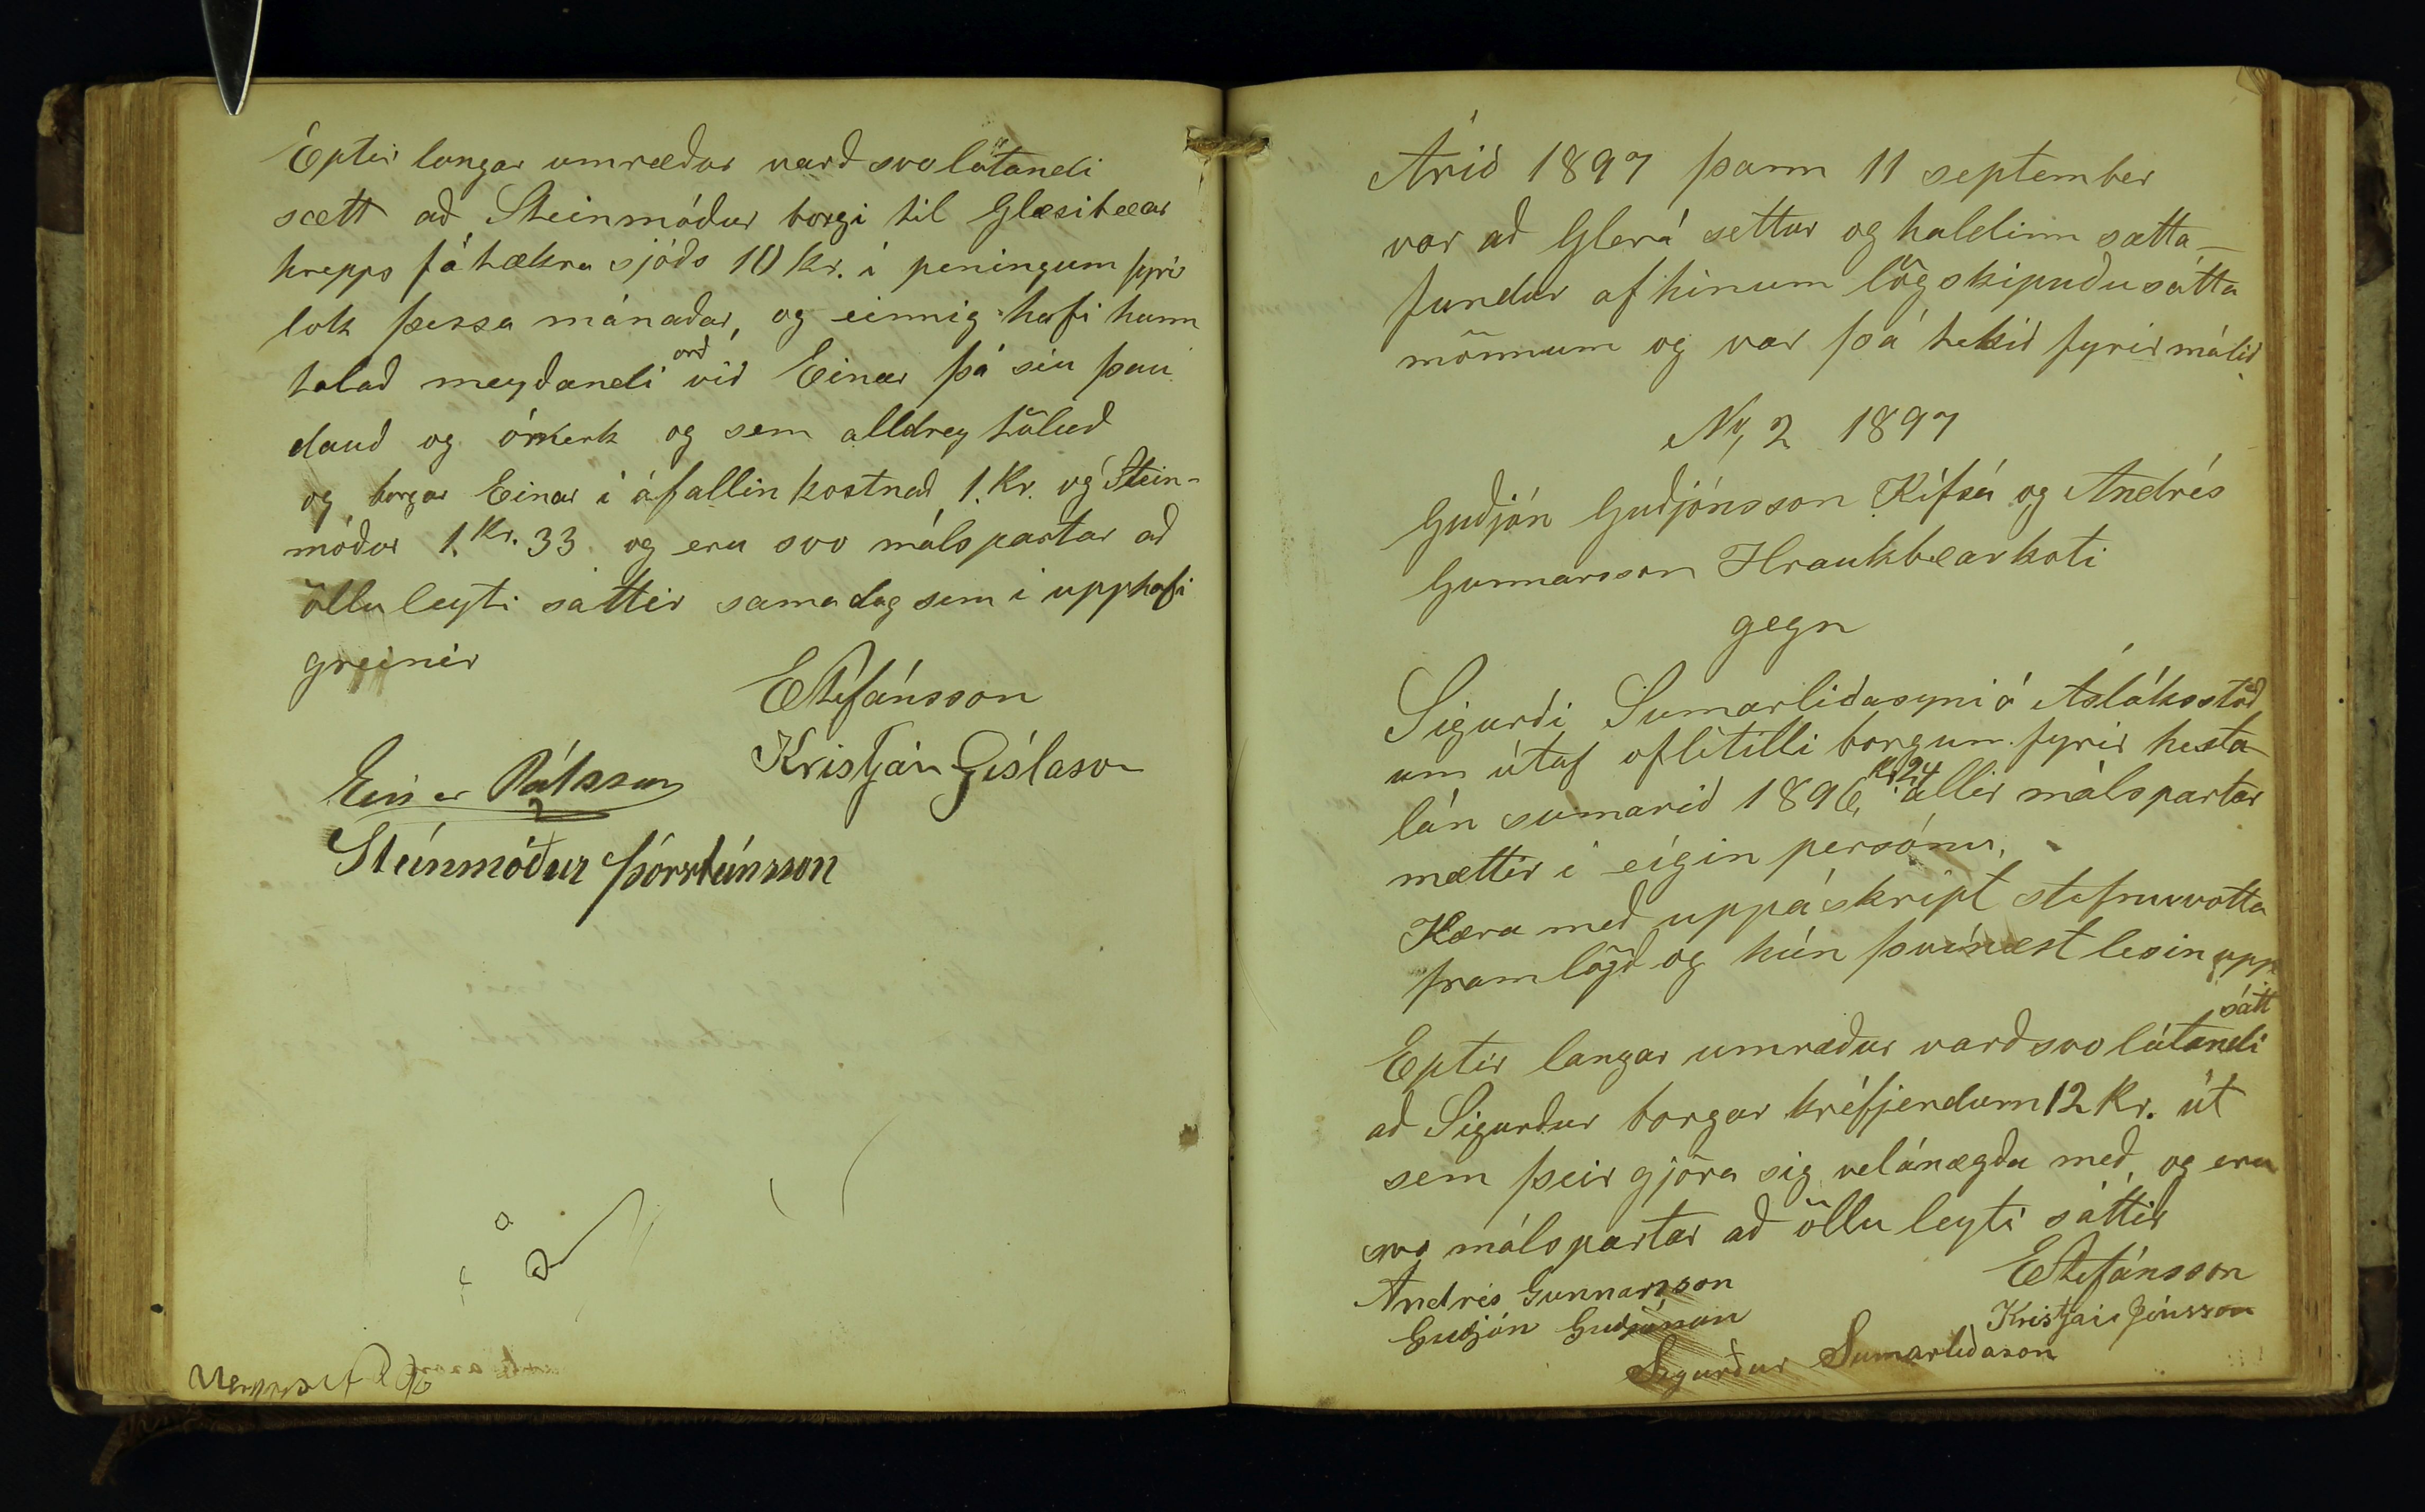 Éptir langar umræður varð svolátandi
sætt að Steinmóður borgi til Glæsibæar
hrepps fátækra sjóðs 10 kr. í peningum fyrir
lok þessa mánaðar, og einnig hafi hann
talað meyðandi orð við Einar þá séu þau
dauð og ómerk og sem alldrey töluð
og borgar Einar í áfallin kostnað 1. Kr. og Stein-
móður 1. Kr. 33. og eru svo málspartar að
öllu leyti sáttir sama dag sem í upphafi
greinir
EStefánsson
Kristján Gíslason
Einar Pálsson
Steinmóður Þórsteinsson
Árið 1897 þann 11 september
var að Glerá settur og haldinn sætta-
fundur af hinum lögskipuðu sátta
mönnum og var þá tekið fyrir málið
Nr, 2 1897
Guðjón Guðjónsson Kífsá og Andrés
Gunnarsson Hraukbæarkoti
gegn
Sigurði Sumarliðasyni á Ásláksstöð
um útaf oflítilli borgun fyrir hesta
lán sumarið 1896, Kr. 24 allir málspartar
mættir í eigin persónu,
Kæra með uppáskript stefnuvotta
framlögð og hún þvínæst lesin upp
Eptir langar umræður varð svo látandi sátt
að Sigurður borgar kréfjendum 12 kr. út
sem þeir gjöra sig velánægða með, og eru
svo málspartar að öllu leyti sáttir
EStefánsson
Andrés Gunnarsson
Kristján Jónsson
Guðjón Guðjónsson
Sigurður Sumarliðason